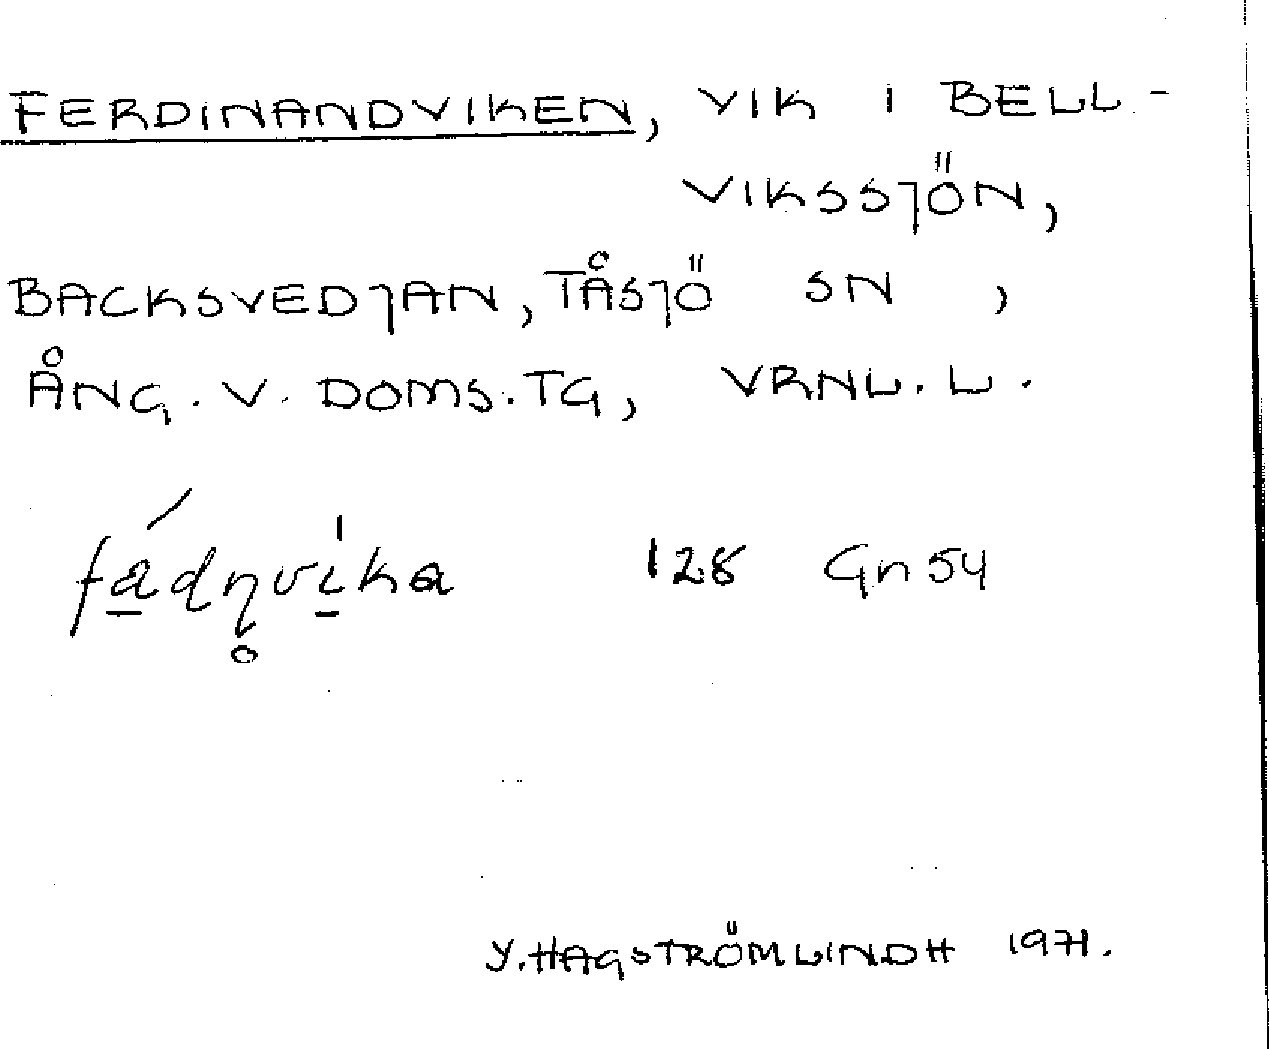 FERDINANDVIKEN, VIK I BELL-
VIKSSJÖN,
BACKSVEDJAN, TÅSJÖ SN ,
ÅNG. V. DOMS. TG, VRNL. L.
fádn̥vika 128 Gn 54
Y. HAGSTRÖM LINDH 1971.